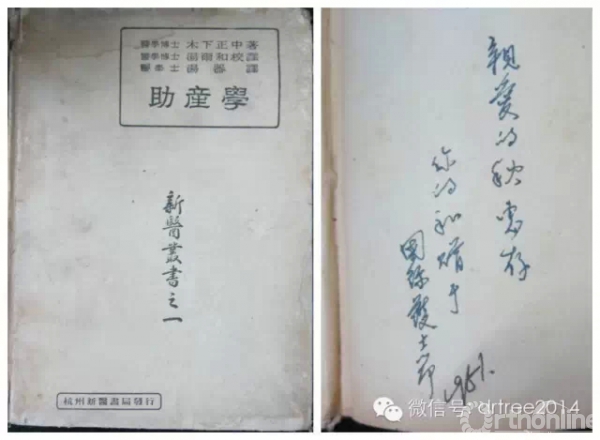 醫學博士 木下正中著
醫學博士 湯爾和校譯
醫學士 湯器譯
助產學
新醫叢書之一
杭州新醫書局發行
親愛的秋存
你的和贈于
國際護士節
1951.
微信号: drtree2014
orthonline